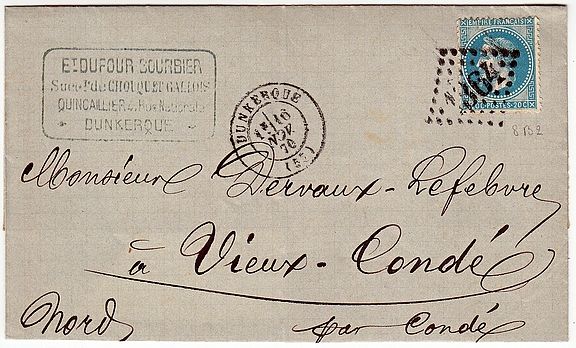 Et DUFOUR BOURBIER
Succr de CHOUQUET GALLOIS
QUINCAILLIER, Rue Nationale
DUNKERQUE
DUNKERQUE
16
NOV.
70
EMPIRE FRANÇAIS
POSTES 20C
Monsieur Dervaux-Lefebvre
à Vieux-Condé
Nord par Condé